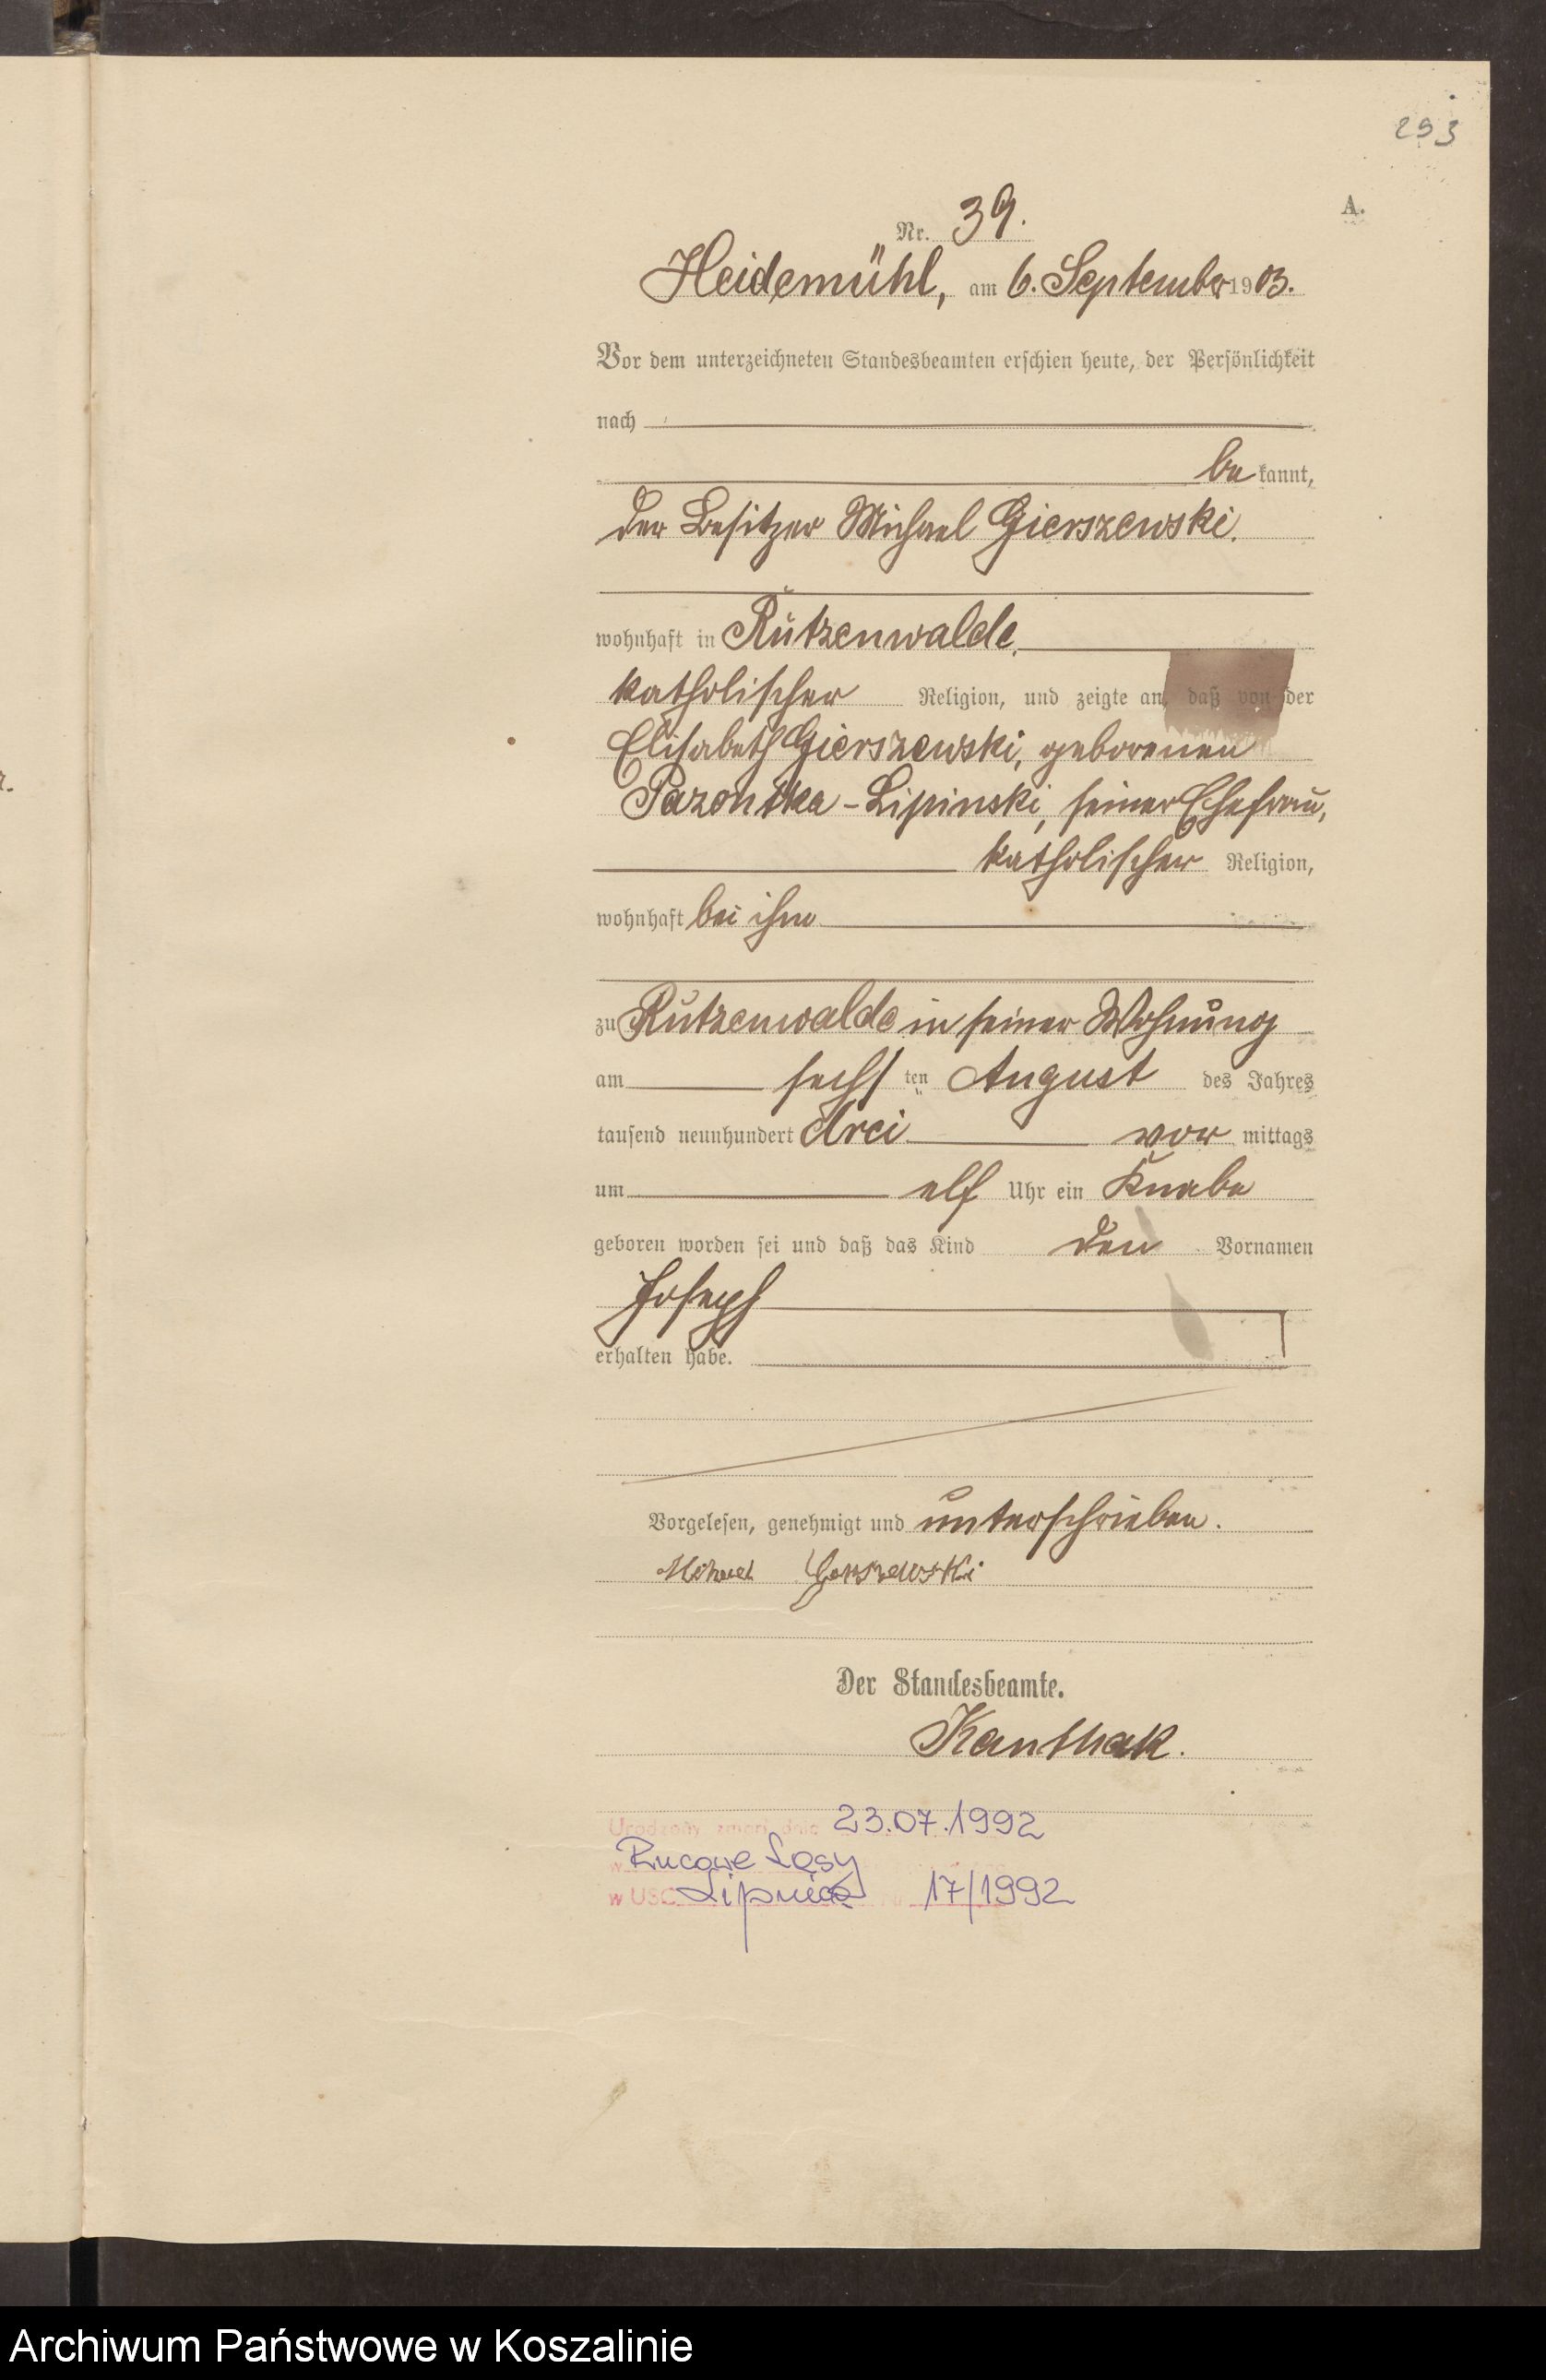 293
A.
Nr. 39.
Heidemühl, am 6. September 1903.
Vor dem unterzeichneten Standesbeamten erschien heute, der Persönlichkeit
nach
be kannt,
der Besitzer Michael Gierszewski.
wohnhaft in Rutzenwalde,
katholischer Religion, und zeigte an, daß von der
Elisabeth Gierszewski, geborenen
Pazontka-Lipinski, seiner Ehefrau,
katholischer Religion,
wohnhaft bei ihm
zu Rutzenwalde in seiner Wohnung
am sechs ten August des Jahres
tausend neunhundert drei vor mittags
um elf Uhr ein Knabe
geboren worden sei und daß das Kind den Vornamen
Joseph
erhalten habe.
Vorgelesen, genehmigt und unterschrieben.
Gierszewski
Der Standesbeamte.
Kanthak.
zmarł dnia 23.07.1992
w Rucowe Lasy
w USC Lipnica Nr 17/1992
Archiwum Państwowe w Koszalinie